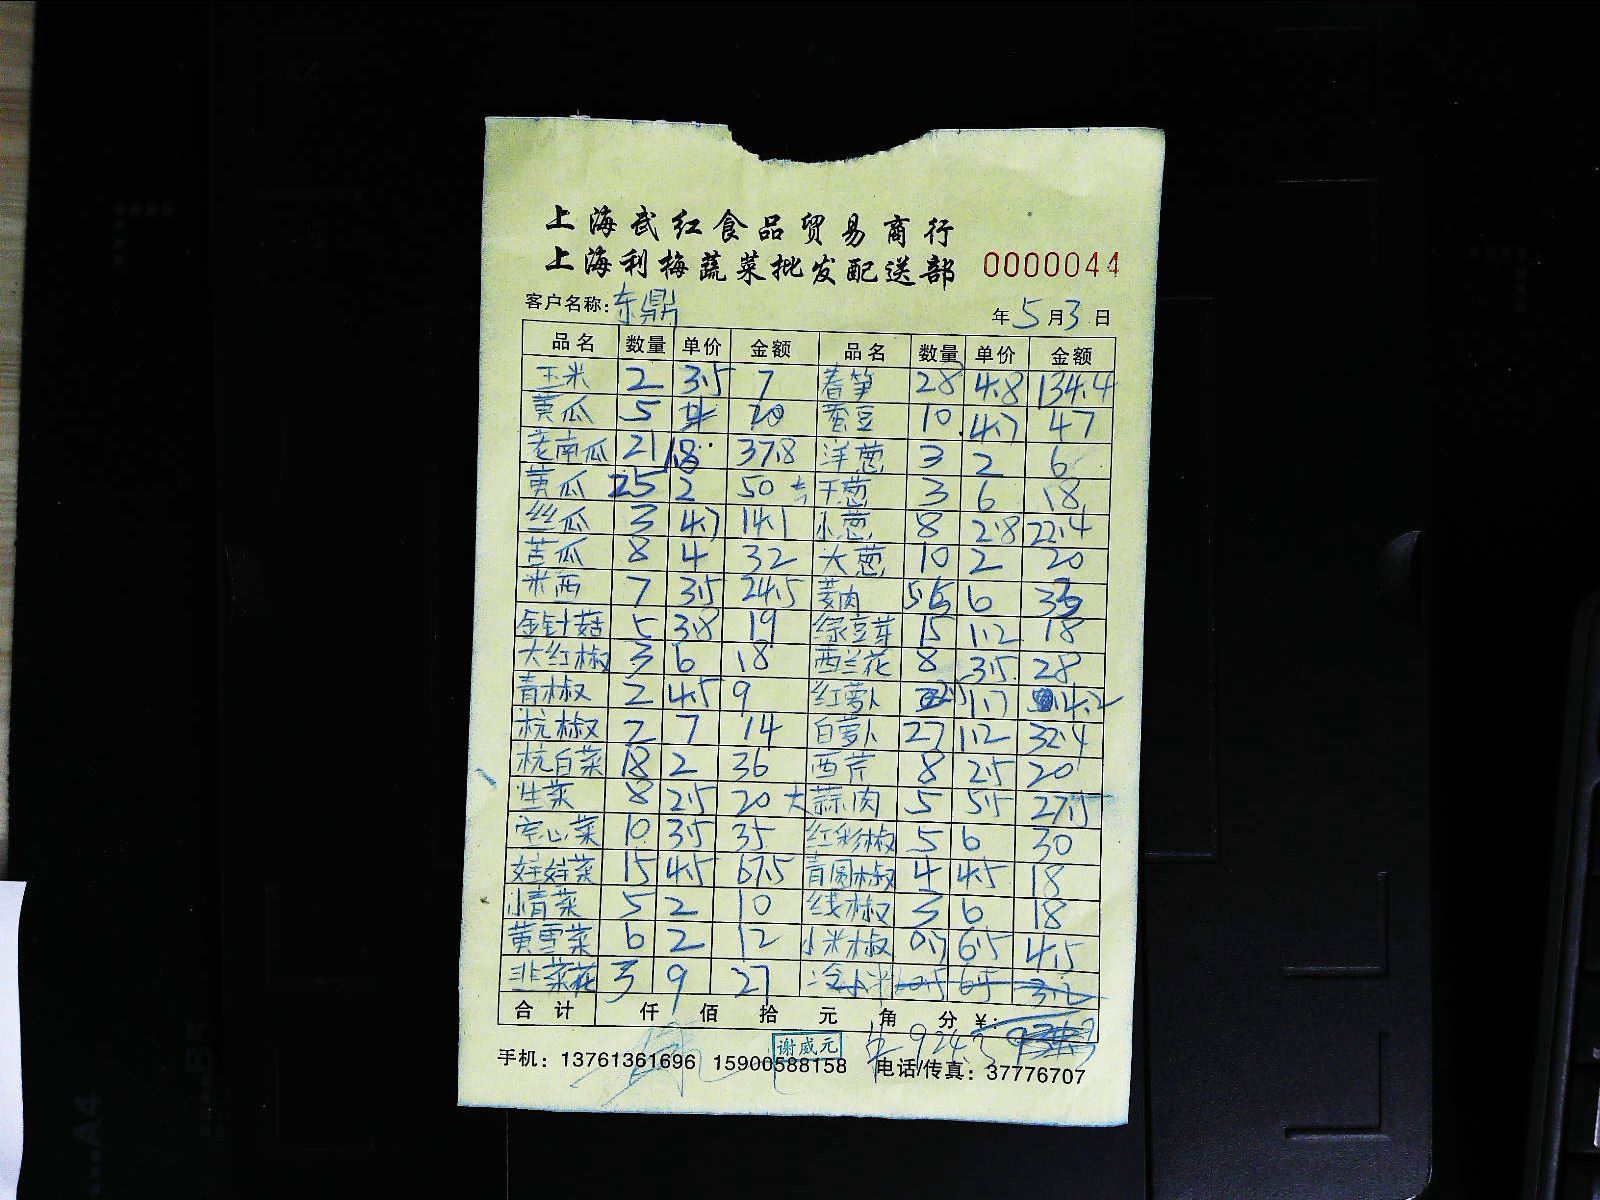 上海武红食品贸易商行
上海利梅蔬菜批发配送部 0000044
客户名称: 东鼎 年 5 月 3 日
品名 数量 单价 金额 品名 数量 单价 金额
玉米 2 3.5 7 春笋 28 4.8 134.4
黄瓜 5 4 20 蚕豆 10 4.7 47
老南瓜 21 1.8 37.8 洋葱 3 2 6
黄瓜 25 2 50 干葱 3 6 18
丝瓜 3 4.7 14.1 小葱 8 2.8 22.4
苦瓜 8 4 32 大葱 10 2 20
米西 7 3.5 24.5 姜肉 6
金针菇 5 3.8 19 绿豆芽 15 1.2 18
大红椒 3 6 18 西兰花 8 3.5 28
青椒 2 4.5 9 红萝卜 1.7
杭椒 2 7 14 白萝卜 27 1.2 32.4
杭白菜 18 2 36 西芹 8 2.5 20
生菜 8 2.5 20 大蒜肉 5 5.5 27.5
空心菜 10 3.5 35 红彩椒 5 6 30
娃娃菜 15 4.5 67.5 青圆椒 4 4.5 18
小青菜 5 2 10 线椒 3 6 18
黄雪菜 6 2 12 小米椒 0.7 6.5 4.5
韭菜花 3 9 27
合计 仟 佰 拾 元 角 分 ¥:
谢威元
手机: 13761361696 15900588158 电话/传真: 37776707